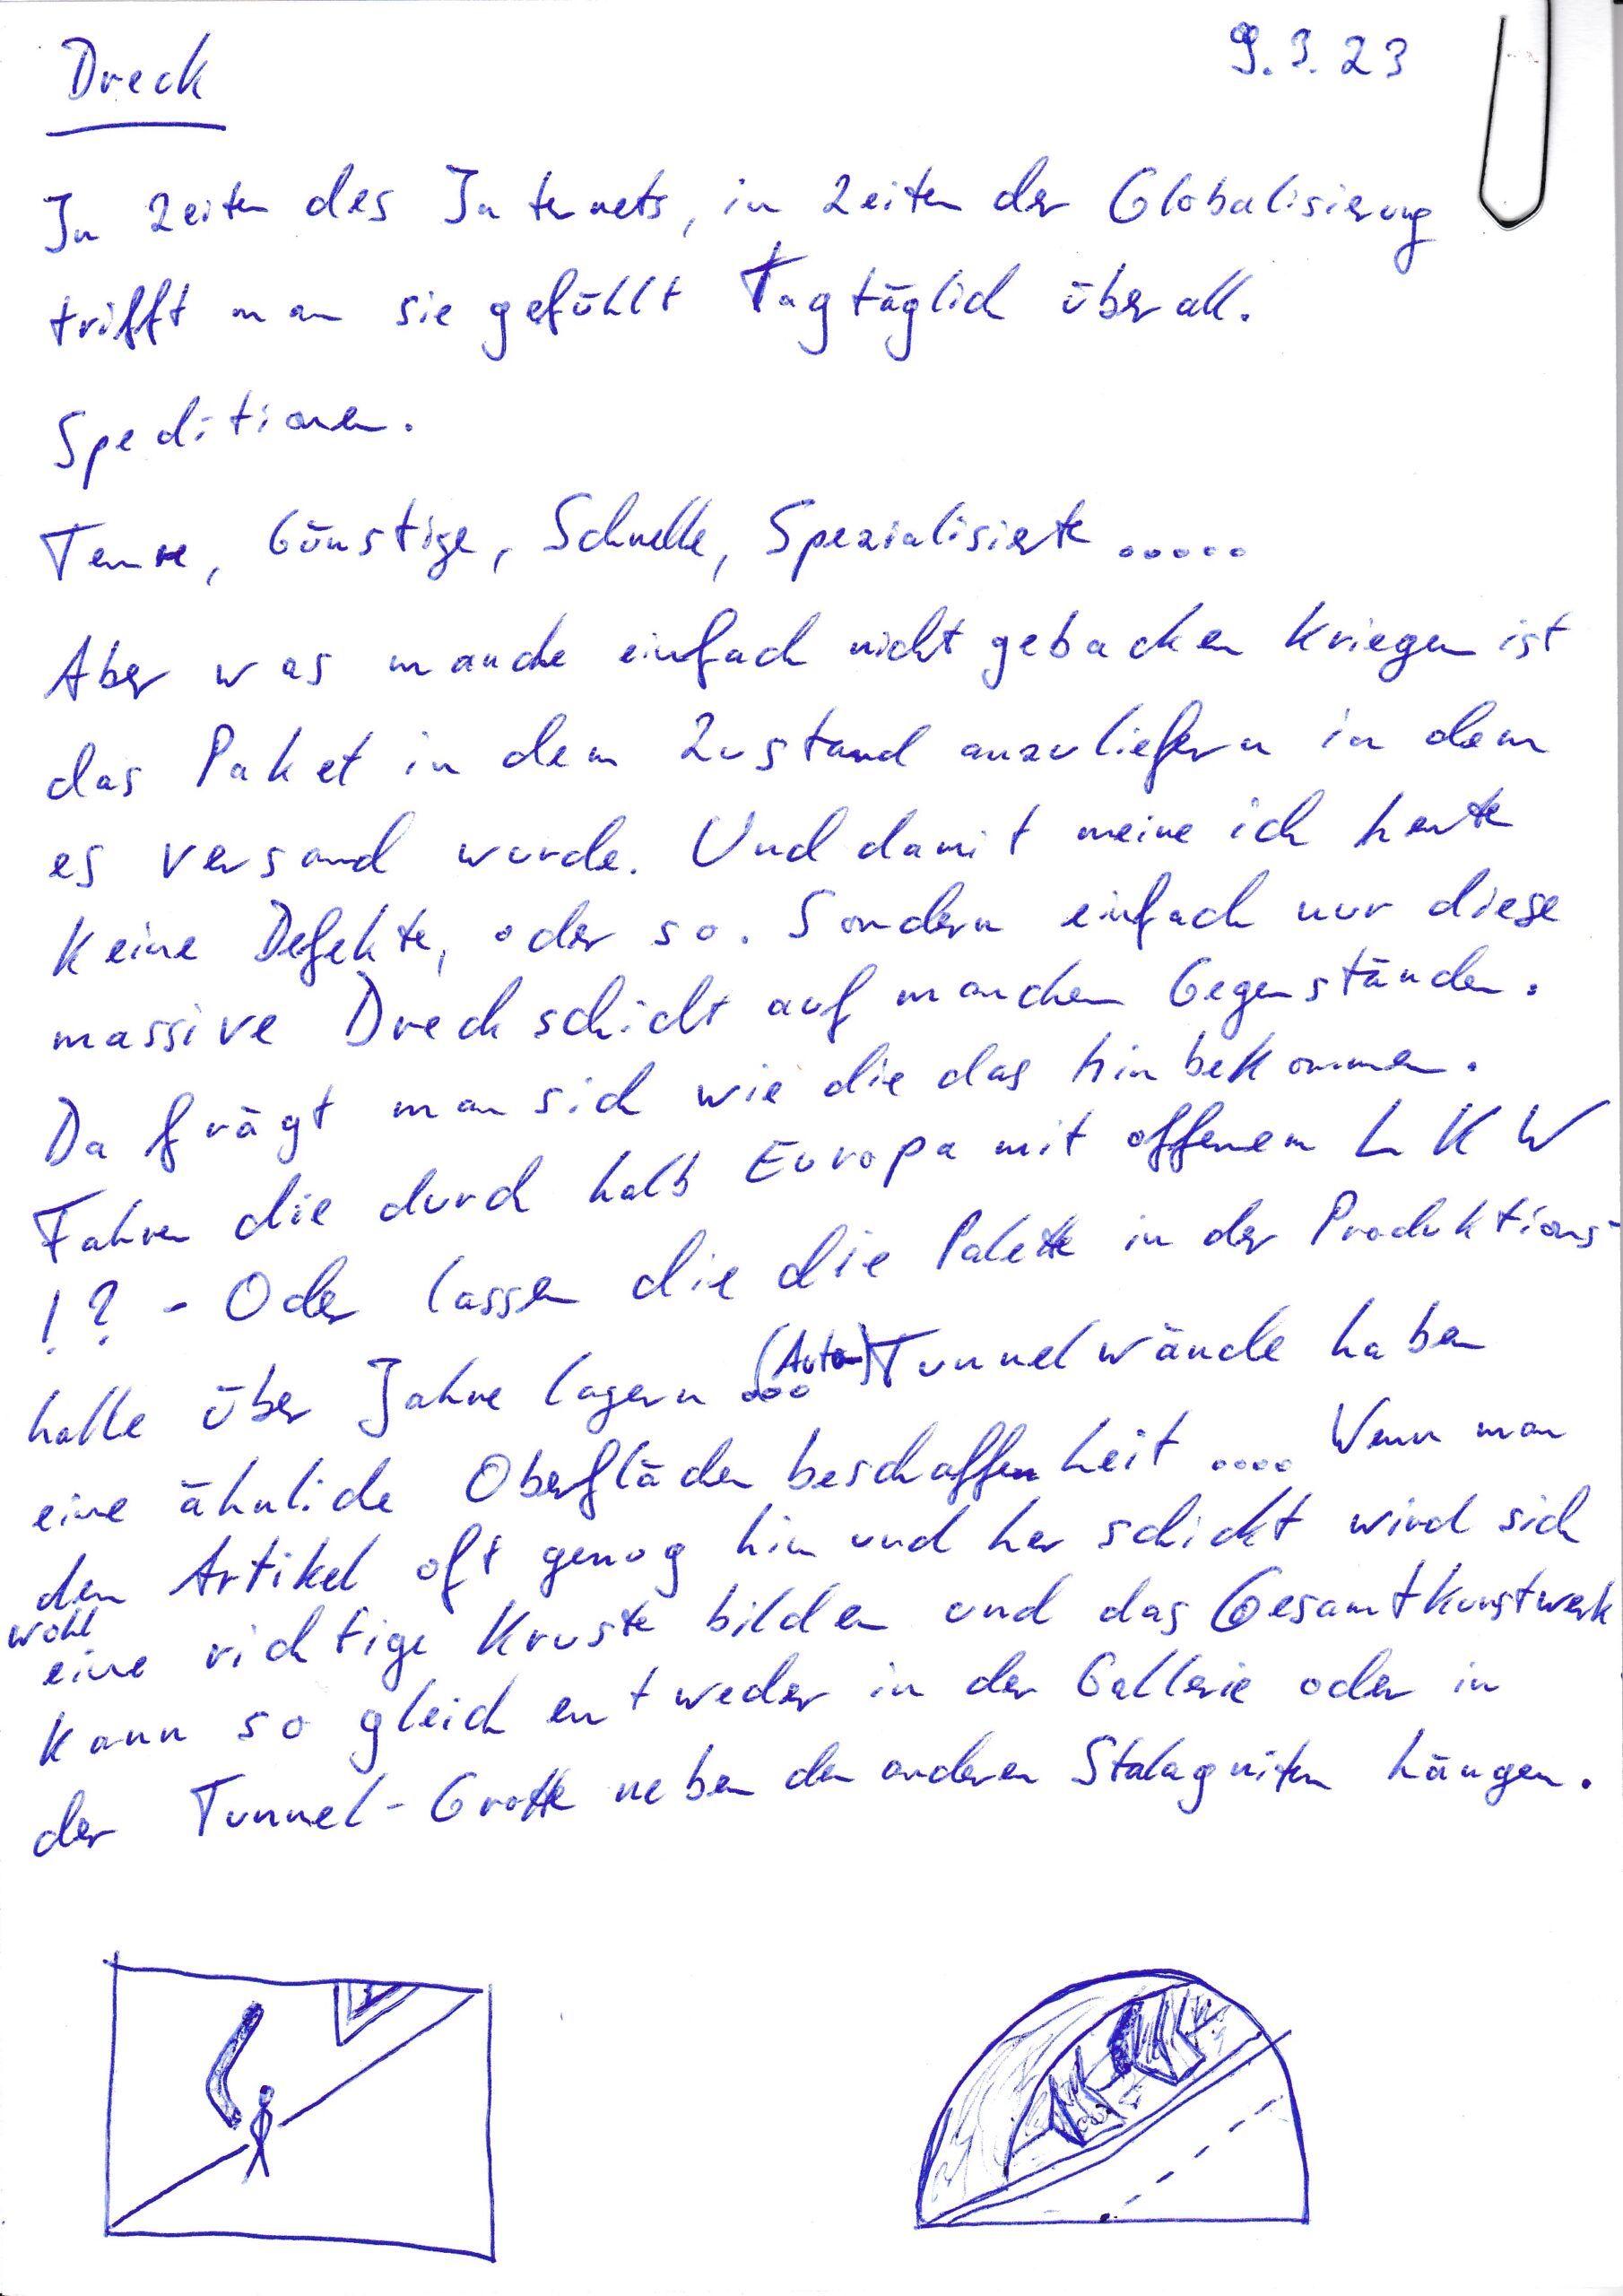 Dreck
9.3.23
In Zeiten des Internets, in Zeiten der Globalisierung
trifft man sie gefühlt Tagtäglich überall.
Speditionen.
Teure, Günstige, Schnelle, Spezialisierte .....
Aber was manche einfach nicht gebacken kriegen ist
das Paket in dem Zustand anzuliefern in dem
es versand wurde. Und damit meine ich heute
keine Defekte, oder so. Sondern einfach nur diese
massive Dreckschicht auf manchen Gegenständen.
Da frägt man sich wie die das hinbekommen.
Fahren die durch halb Europa mit offenem LKW
!? - Oder lassen die die Palette in der Produktions-
halle über Jahre lagern ... (Auto-) Tunnelwände haben
eine ähnliche Oberflächenbeschaffenheit .... Wenn man
den Artikel oft genug hin und her schickt wird sich
wohl
eine richtige Kruste bilden und das Gesamtkunstwerk
kann so gleich entweder in der Gallerie oder in
der Tunnel-Grotte neben den anderen Stalagniten hängen.